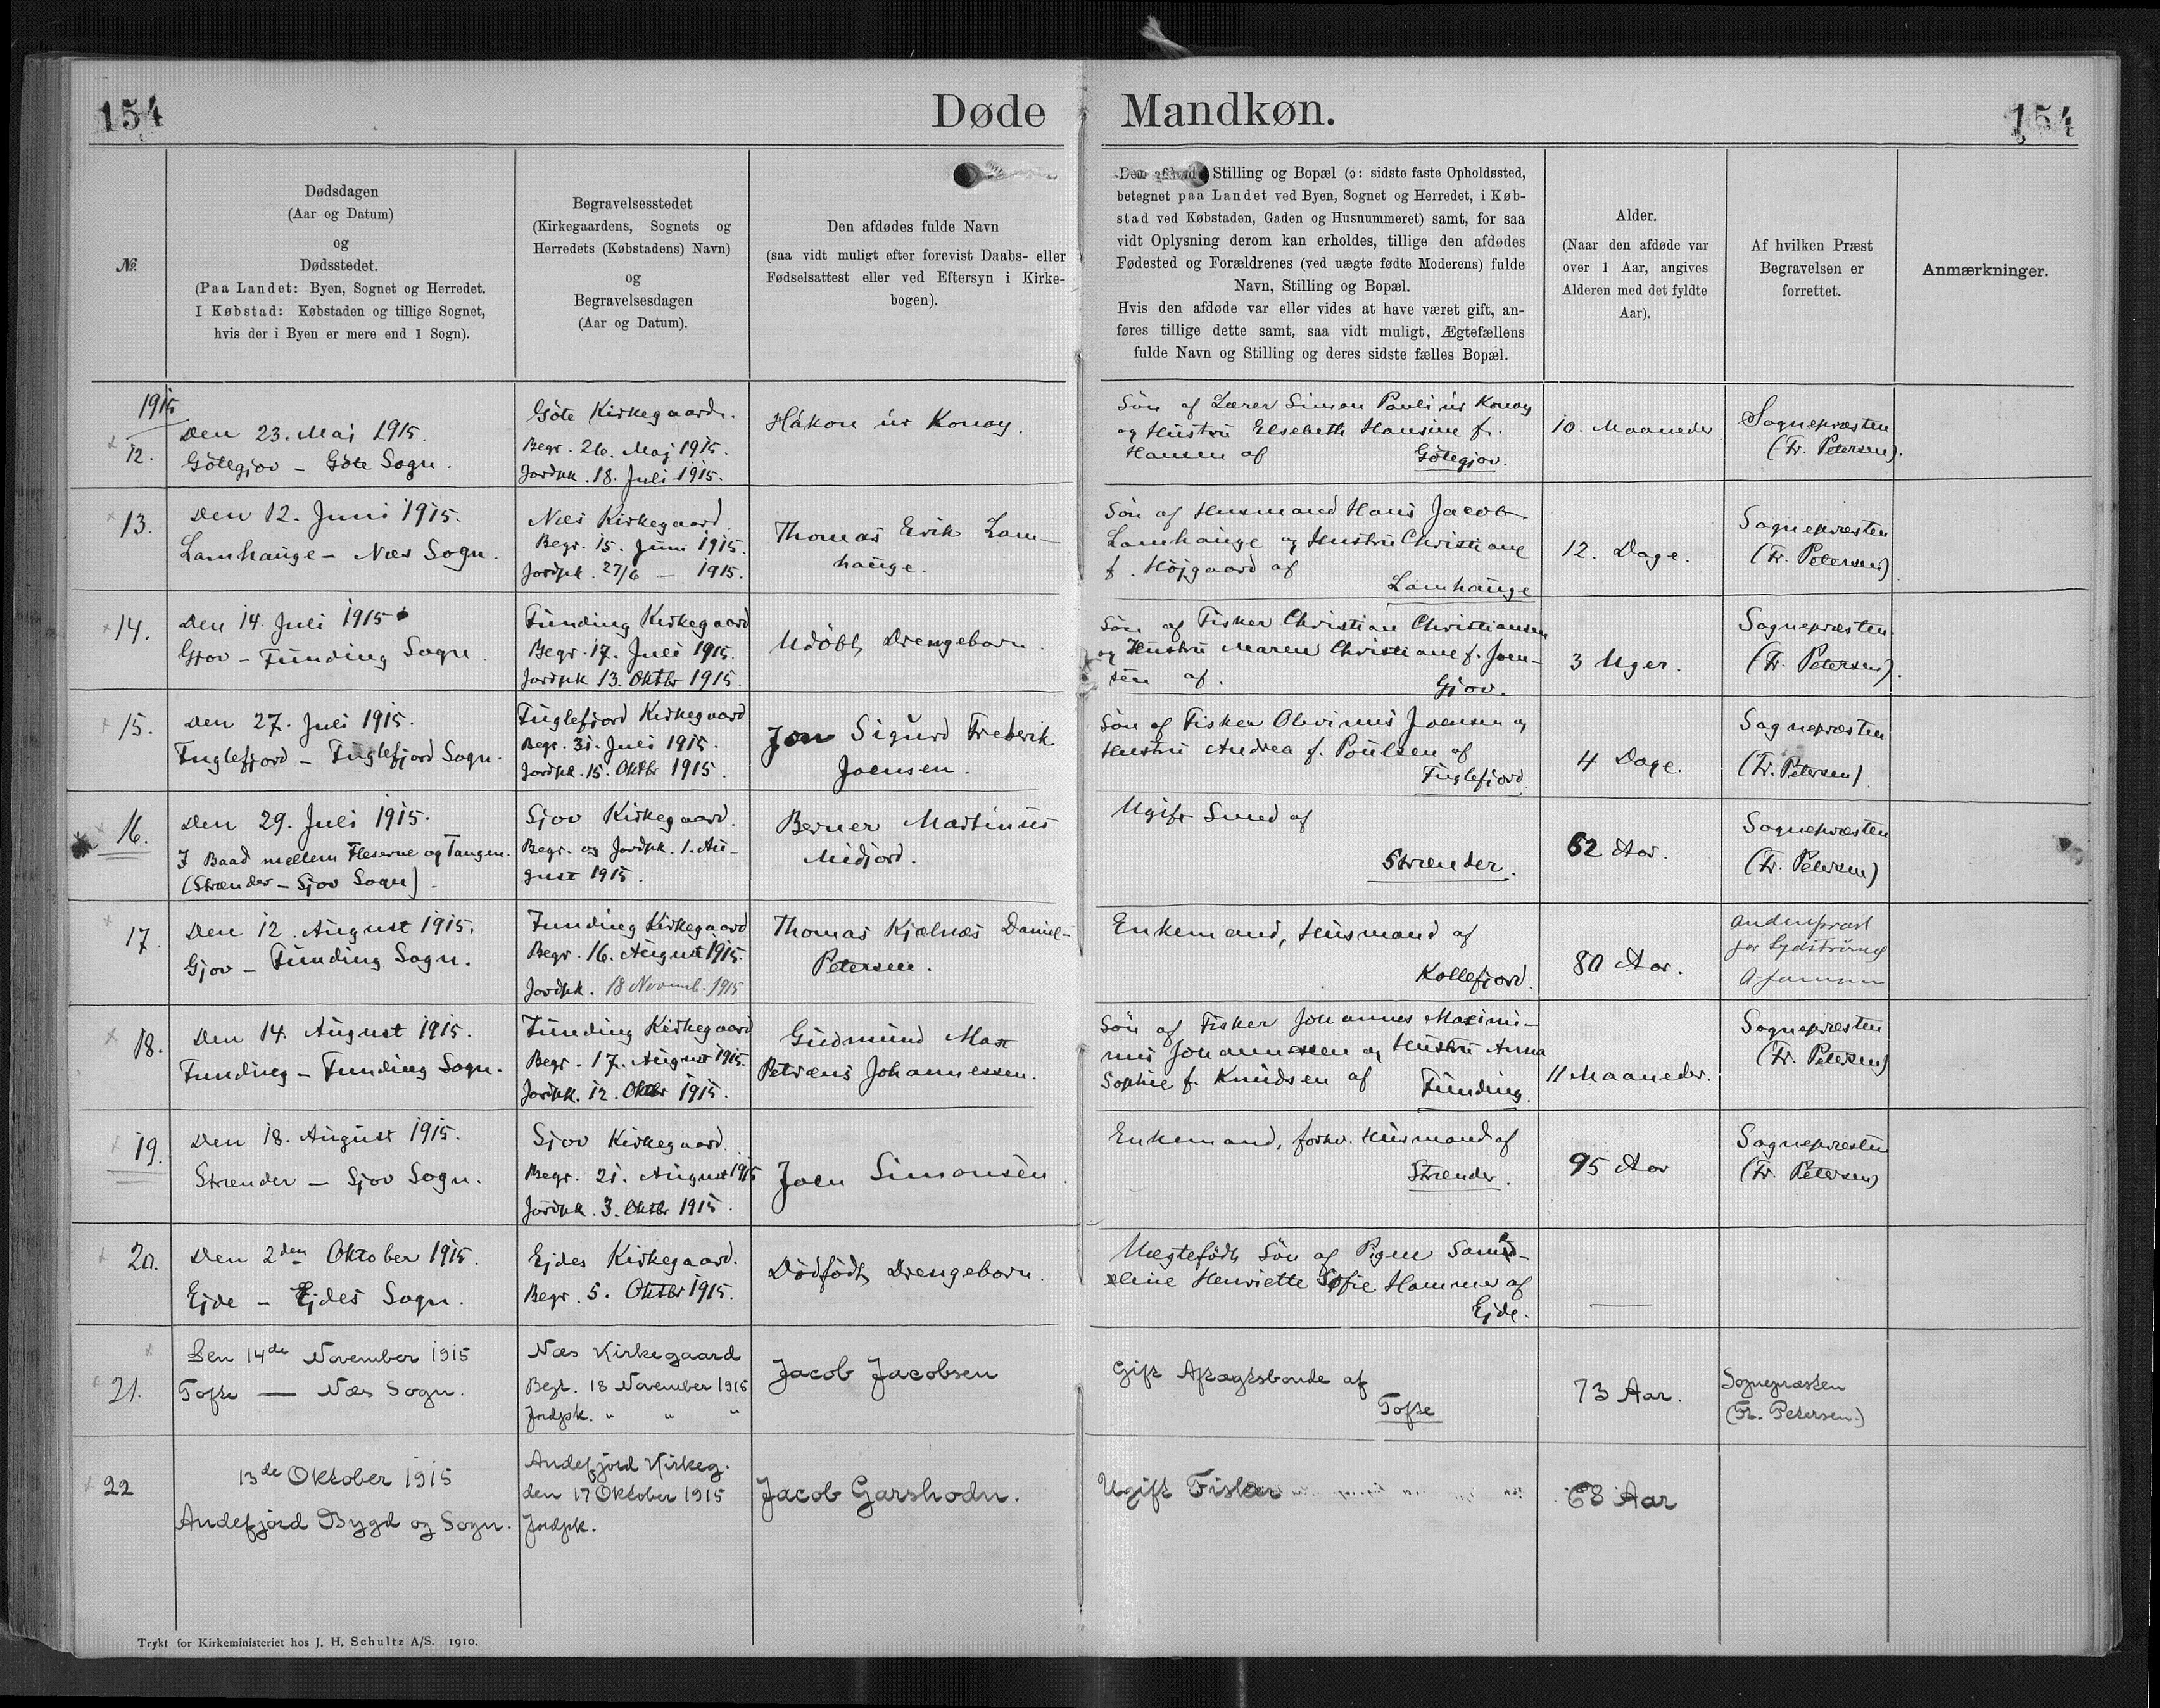 154
Døde Mandkøn.
154
№
Dødsdagen
(Aar og Datum)
og
Dødsstedet.
(Paa Landet: Byen, Sognet og Herredet.
I Købstad: Købstaden og tillige Sognet,
hvis der i Byen er mere end 1 Sogn).
Begravelsesstedet
(Kirkegaardens, Sognets og
Herredets (Købstadens) Navn)
og
Begravelsesdagen
(Aar og Datum).
Den afdødes fulde Navn
(saa vidt muligt efter forevist Daabs- eller
Fødselsattest eller ved Eftersyn i Kirke-
bogen).
Den afdødes Stilling og Bopæl (ɔ: sidste faste Opholdssted,
betegnet paa Landet ved Byen, Sognet og Herredet, i Køb-
stad ved Købstaden, Gaden og Husnummeret) samt, for saa
vidt Oplysning derom kan erholdes, tillige den afdødes
Fødested og Forældrenes (ved uægte fødte Moderens) fulde
Navn, Stilling og Bopæl.
Hvis den afdøde var eller vides at have været gift, an-
føres tillige dette samt, saa vidt muligt, Ægtefællens
fulde Navn og Stilling og deres sidste fælles Bopæl.
Alder.
(Naar den afdøde var
over 1 Aar, angives
Alderen med det fyldte
Aar).
Af hvilken Præst
Begravelsen er
forrettet.
Anmærkninger.
1915
12.
Den 23. Maj 1915.
Götegjov - Göte Sogn.
Göte Kirkegaard.
Begr. 26. Maj 1915.
Jordpk. 18. Juli 1915.
Hákon úr Konoy.
Sön af Lærer Simon Pauli úr Konoy
og Hustru Elsebeth Hansine f.
Hansen af Götegjov.
10. Maaneder
Sognepræsten
(Fr. Petersen).
13.
Den 12. Juni 1915.
Lamhauge - Næs Sogn.
Næs Kirkegaard.
Begr. 15. Juni 1915.
Jordpk. 27/6 - 1915.
Thomas Erik Lam-
hauge.
Sön af Husmand Hans Jacob
Lamhauge og Hustru Christiane
f. Höjgaard af
Lamhauge
12. Dage.
Sognepræsten
(Fr. Petersen)
14.
Den 14. Juli 1915
Gjov - Funding Sogn.
Funding Kirkegaard
Begr. 17. Juli 1915.
Jordpk 13. Oktbr 1915.
Udöbt Drengebarn.
Sön af Fisker Christian Christiansen
og Hustru Maren Christiane f. Joen-
sen af. Gjov.
3 Uger.
Sognepræsten
(Fr. Petersen).
15.
Den 27. Juli 1915.
Fuglefjord - Fuglefjord Sogn.
Fuglefjord Kirkegaard
Begr. 31. Juli 1915.
Jordpk. 15. Oktbr 1915.
Jon Sigurd Frederik
Joensen.
Sön af Fisker Olevinus Joensen og
Hustru Andrea f. Poulsen af
Fuglefjord
4 Dage.
Sognepræsten
(Fr. Petersen)
16.
Den 29. Juli 1915.
I Baad mellem Fleserne og Tangen.
(Strænder - Sjov Sogn).
Sjov Kirkegaard.
Begr. og Jordpk. 1. Au-
gust 1915.
Berner Martinus
Midjord.
Ugift Svend af
Strænder.
62 Aar.
Sognepræsten
(Fr. Petersen)
17.
Den 12. August 1915.
Gjov - Funding Sogn.
Funding Kirkegaard
Begr. 16. August 1915.
Jordpk. 18 Novemb. 1915
Thomas Kjælnæs Daniel-
Petersen.
Enkemand, Husmand af
Kollefjord.
80 Aar.
for Sydströmö
18.
Den 14. August 1915.
Funding - Funding Sogn.
Funding Kirkegaard
Begr. 17. August 1915.
Jordpk. 12. Oktbr 1915.
Gudmund Max
Petræus Johannessen.
Sön af Fisker Johannes Maximi-
nus Johannessen og Hustru Anna
Sophie f. Knudsen af Funding.
11 Maaneder.
Sognepræsten
(Fr. Petersen)
19.
Den 18. August 1915.
Strænder - Sjov Sogn.
Sjov Kirkegaard.
Begr. 21. August 1915
Jordpk. 3. Oktbr 1915.
Joen Simonsen.
Enkemand, forhv. Husmand af
Strænder.
95 Aar
Sognepræsten
(Fr. Petersen)
20.
Den 2den Oktober 1915.
Ejde - Ejdes Sogn.
Ejdes Kirkegaard.
Begr. 5. Oktbr 1915.
Dödfödt Drengebarn.
Uægtefödt Sön af Pigen
Henriette Sofie Hammer af
Ejde.
—
21.
Den 14de November 1915
Tofte — Næs Sogn.
Næs Kirkegaard
Begr. 18 November 1915
Jordpk. " " "
Jacob Jacobsen
Gift Aftægtsbonde af
Tofte
73 Aar.
Sognepræsten
(Fr. Petersen.)
22
13de Oktober 1915
Andefjord Bygd og Sogn.
Andefjord Kirkeg.
den 17 Oktober 1915
Jordpk.
Jacob Garshodn.
Ugift Fisker
68 Aar
Trykt for Kirkeministeriet hos J. H. Schultz A/S. 1910.